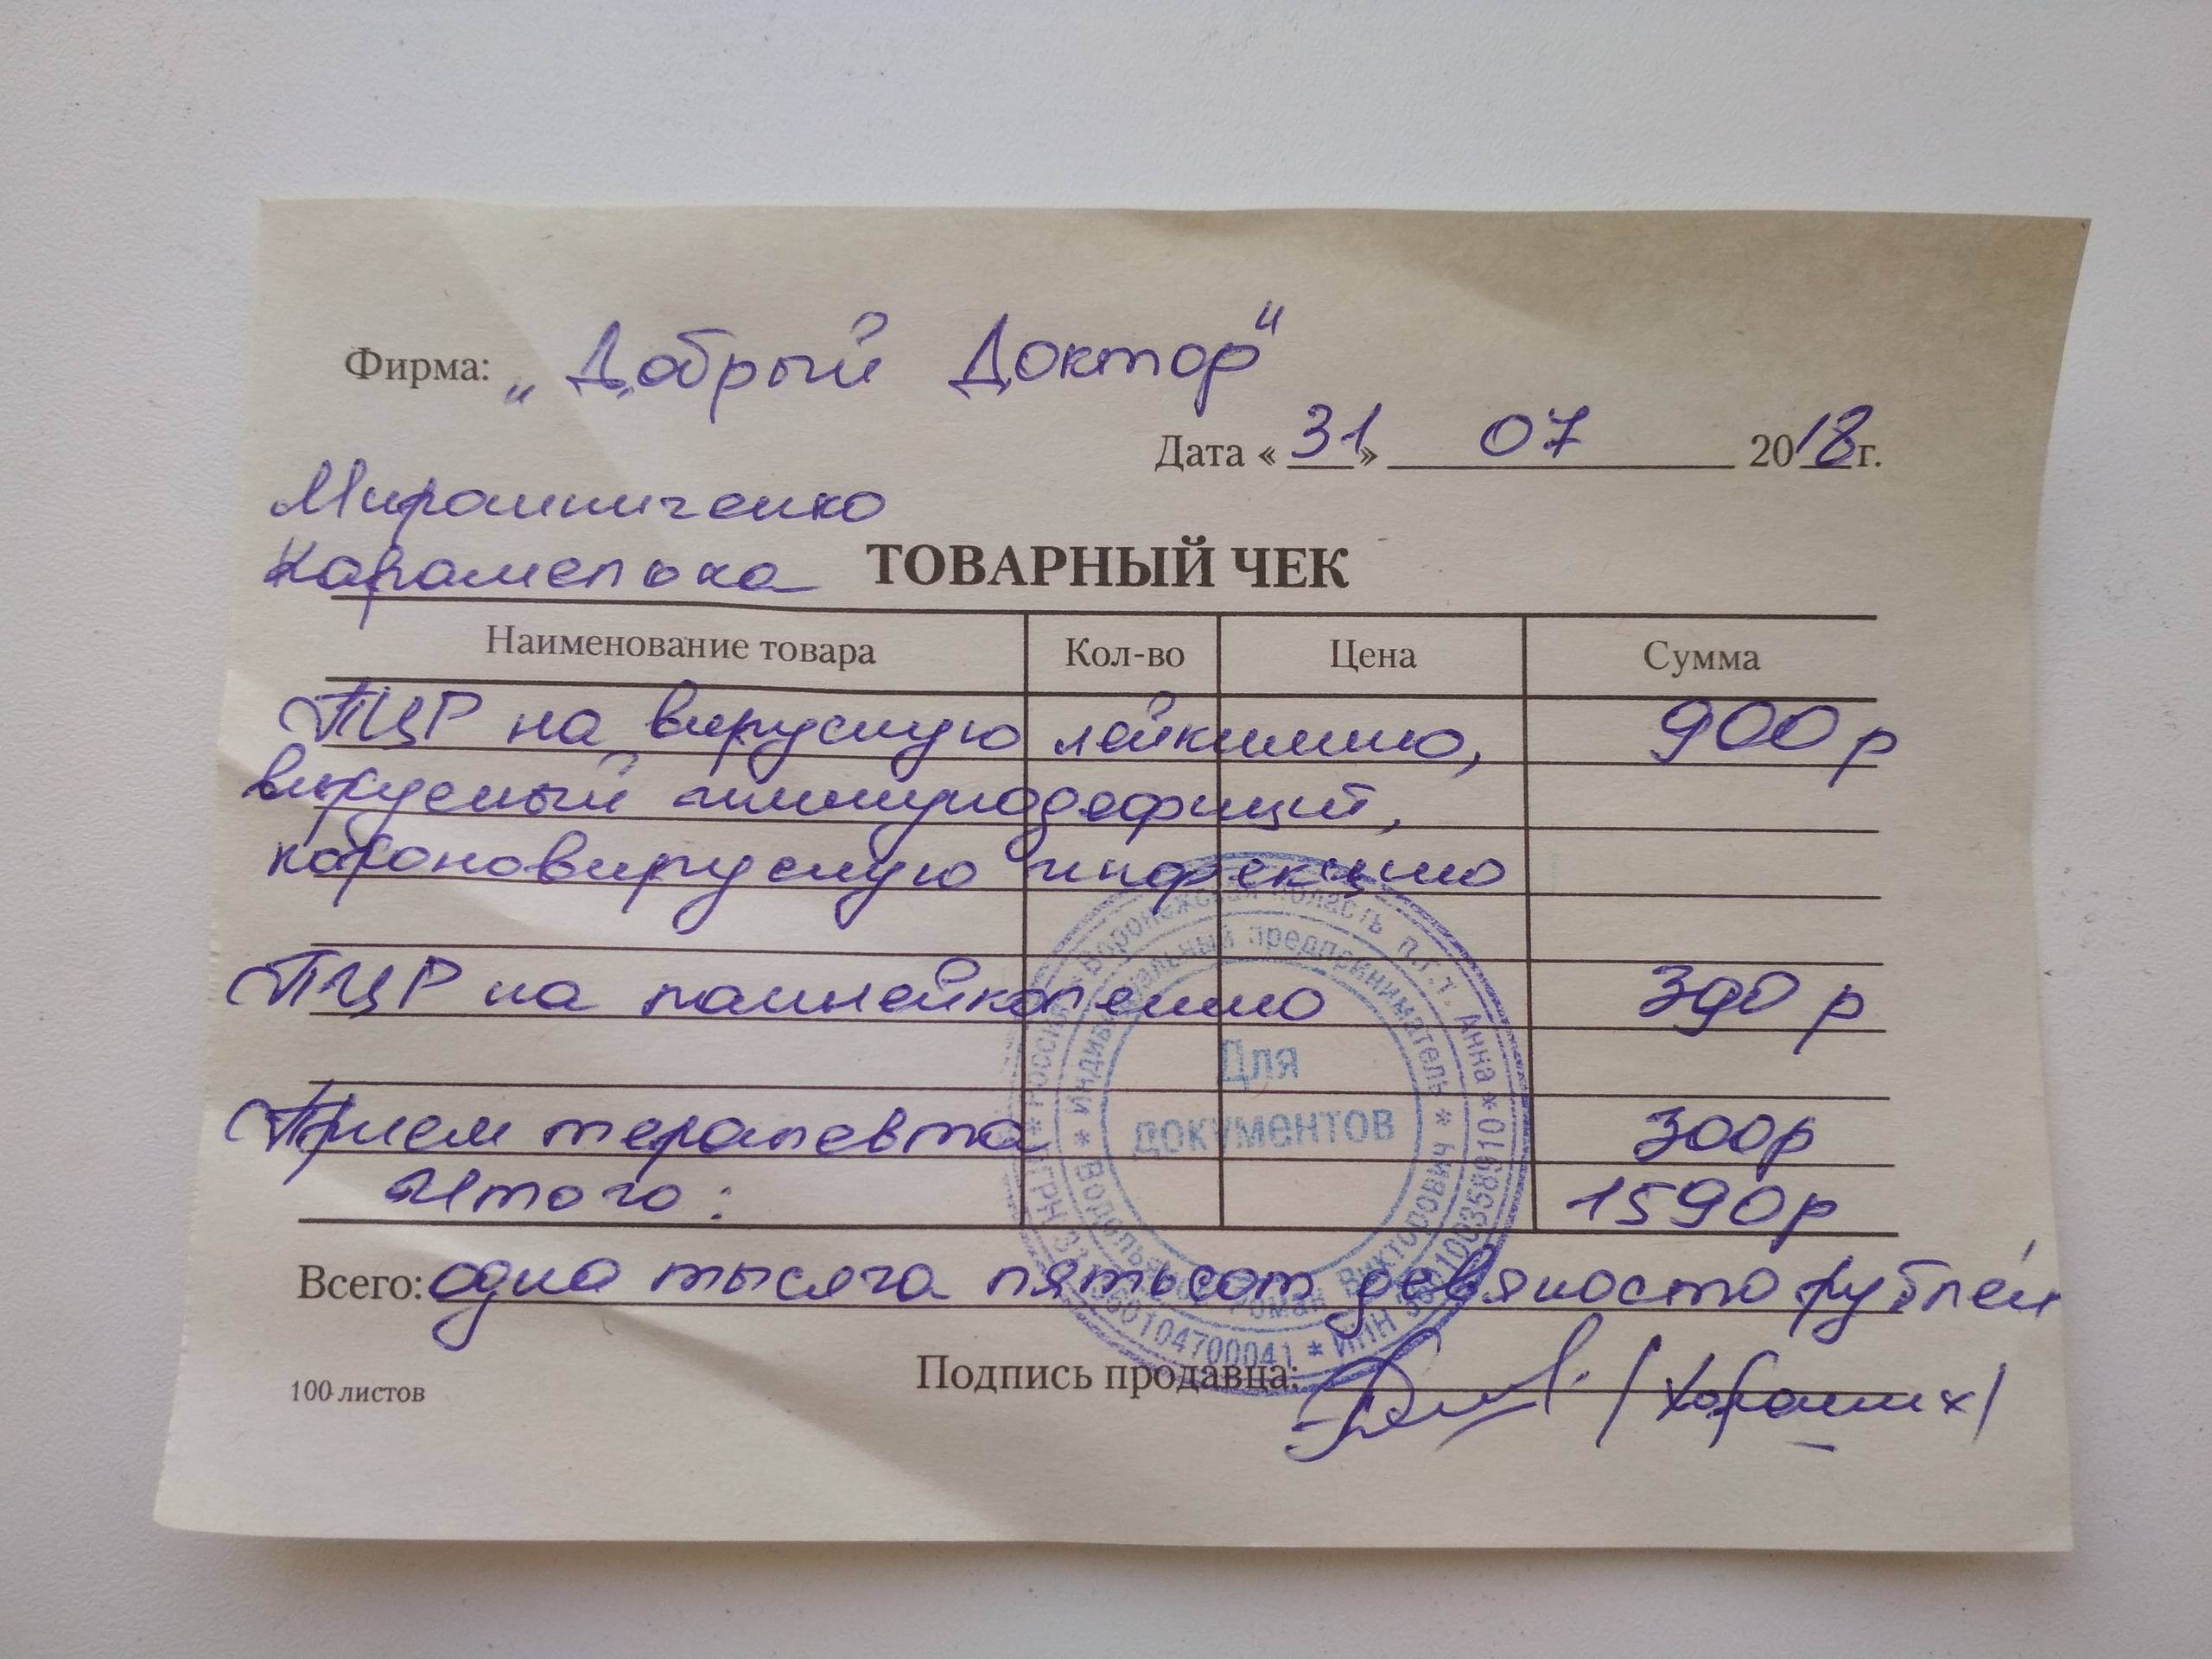 Фирма: „Добрый Доктор"
Дата «31» 07 2018г.
Мирошниченко
Карамелька
ТОВАРНЫЙ ЧЕК
Наименование товара Кол-во Цена Сумма
ПЦР на вирусную лейкимию, 900р
вирусный иммунодефицит,
короновирусную инфекцию
ПЦР на панлейкопению 390 р
Прием терапевта 300р
Итого: 1590р
Всего: одна тысяча пятьсот девяносто рублей
Подпись продавца: /Хороших/
100 листов
Россия * Воронежская область п.г.т. Анна *
Индивидуальный предприниматель * Роман Викторович *
Для
документов